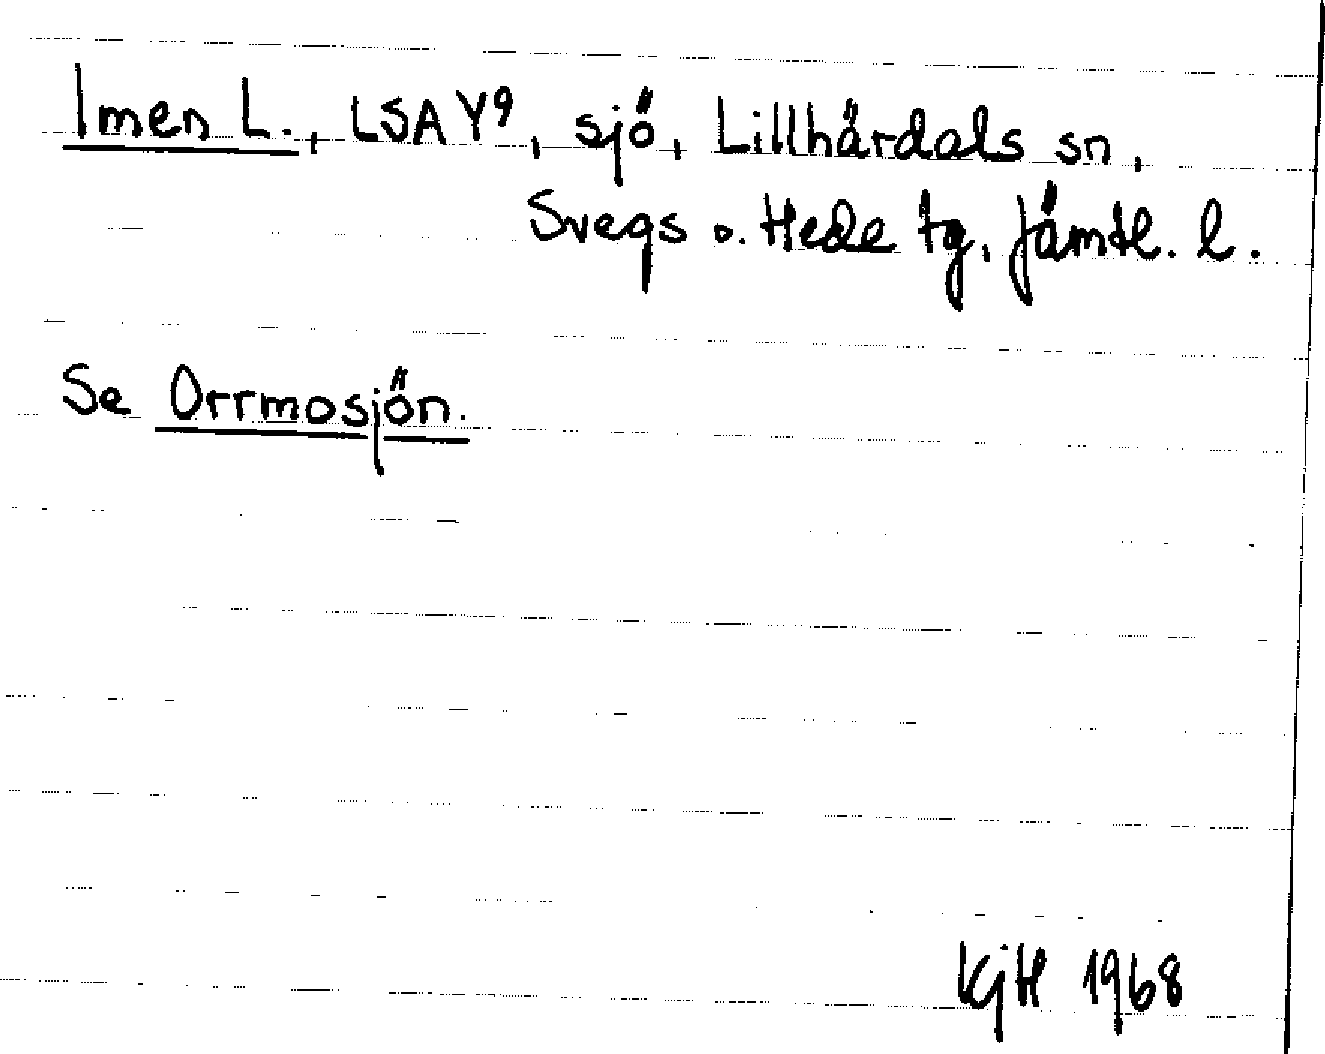 Imen L., LSA Y9, sjö, Lillhärdals sn,
Svegs o. Hede tg, Jämtl. l.
Se Orrmosjön.
KjH 1968